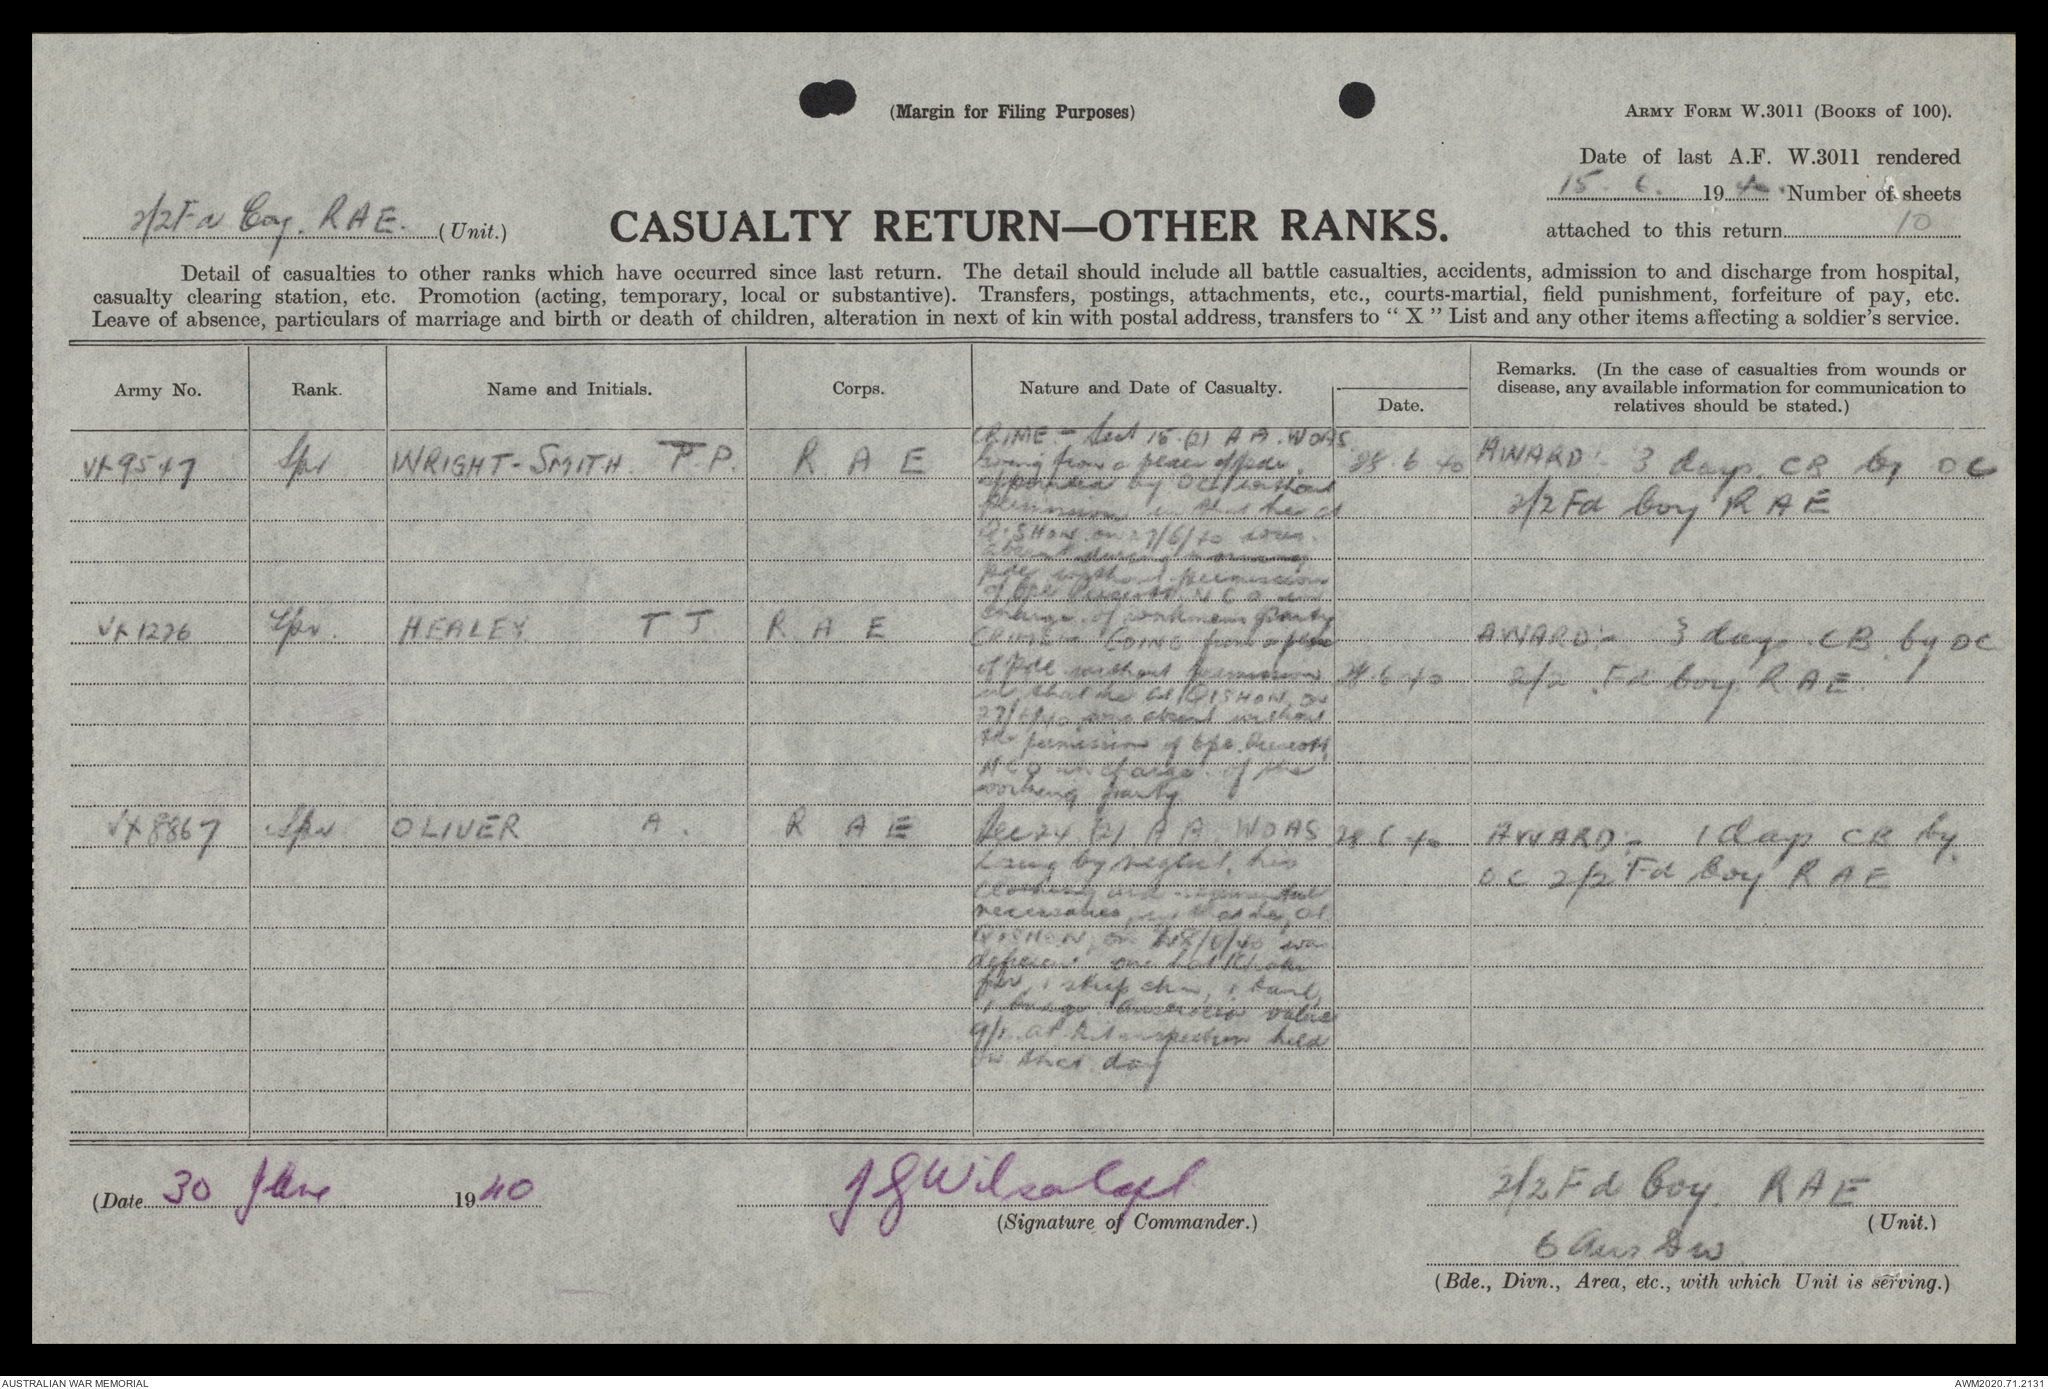 (Margin for Filing Purposes)
ARMY FORM W.3011 (BOOKS of 100).
Date of last A.F. W.3011 rendered
15. 6. 1940. Number of sheets
attached to this return 10
2/2 Fd Coy. R A E. (Unit.)
CASUALTY RETURN—OTHER RANKS.
Detail of casualties to other ranks which have occurred since last return. The detail should include all battle casualties, accidents, admission to and discharge from hospital,
casualty clearing station, etc. Promotion (acting, temporary, local or substantive). Transfers, postings, attachments, etc., courts-martial, field punishment, forfeiture of pay, etc.
Leave of absence, particulars of marriage and birth or death of children, alteration in next of kin with postal address, transfers to " X " List and any other items affecting a soldier's service.
Army No. Rank. Name and Initials. Corps. Nature and Date of Casualty. Date. Remarks. (In the case of casualties from wounds or
disease, any available information for communication to
relatives should be stated.)
VX9547 Spr WRIGHT-SMITH. P.P. R A E 28.6.40 AWARD:- 3 days CB by OC
2/2 Fd Coy R A E
CRIME - Sect 15 (2) A.A. WOAS
Going from a place of pde.
appointed by OC without
permission in that he at
QISHON on 27/6/40 was
absent during morning
pde without permission
of Cpl Prescott N C O in
charge of workmens party
VX1226 Spr. HEALEY T T R A E AWARD:- 3 days CB by OC
2/2 Fd Coy. R A E.
CRIME - GOING from a place
of pde without permission 28.6.40
in that he at QISHON, on
27/6/40 was absent without
the permission of Cpl. Prescott
N C O in charge of the
working party
VX8867 Spr OLIVER A. R A E Sec 24 (2) A A. WOAS 28.6.40 AWARD:- 1 day CB by
OC 2/2 Fd Coy R A E
Losing by neglect, his
clothing and regimental
necessaries, in that he, at
QISHON, on /6/40 was
deficient one hat khaki
fur, 1 strap chin, 1 band,
1 badge Australia value
9/1 at kit inspection held
on that day
(Date 30 June 1940 J G Wilson Capt
(Signature of Commander.)
2/2 Fd Coy. R A E
(Unit.)
6 Aus Div
(Bde., Divn., Area, etc., with which Unit is serving.)
AUSTRALIAN WAR MEMORIAL
AWM2020.71.2131